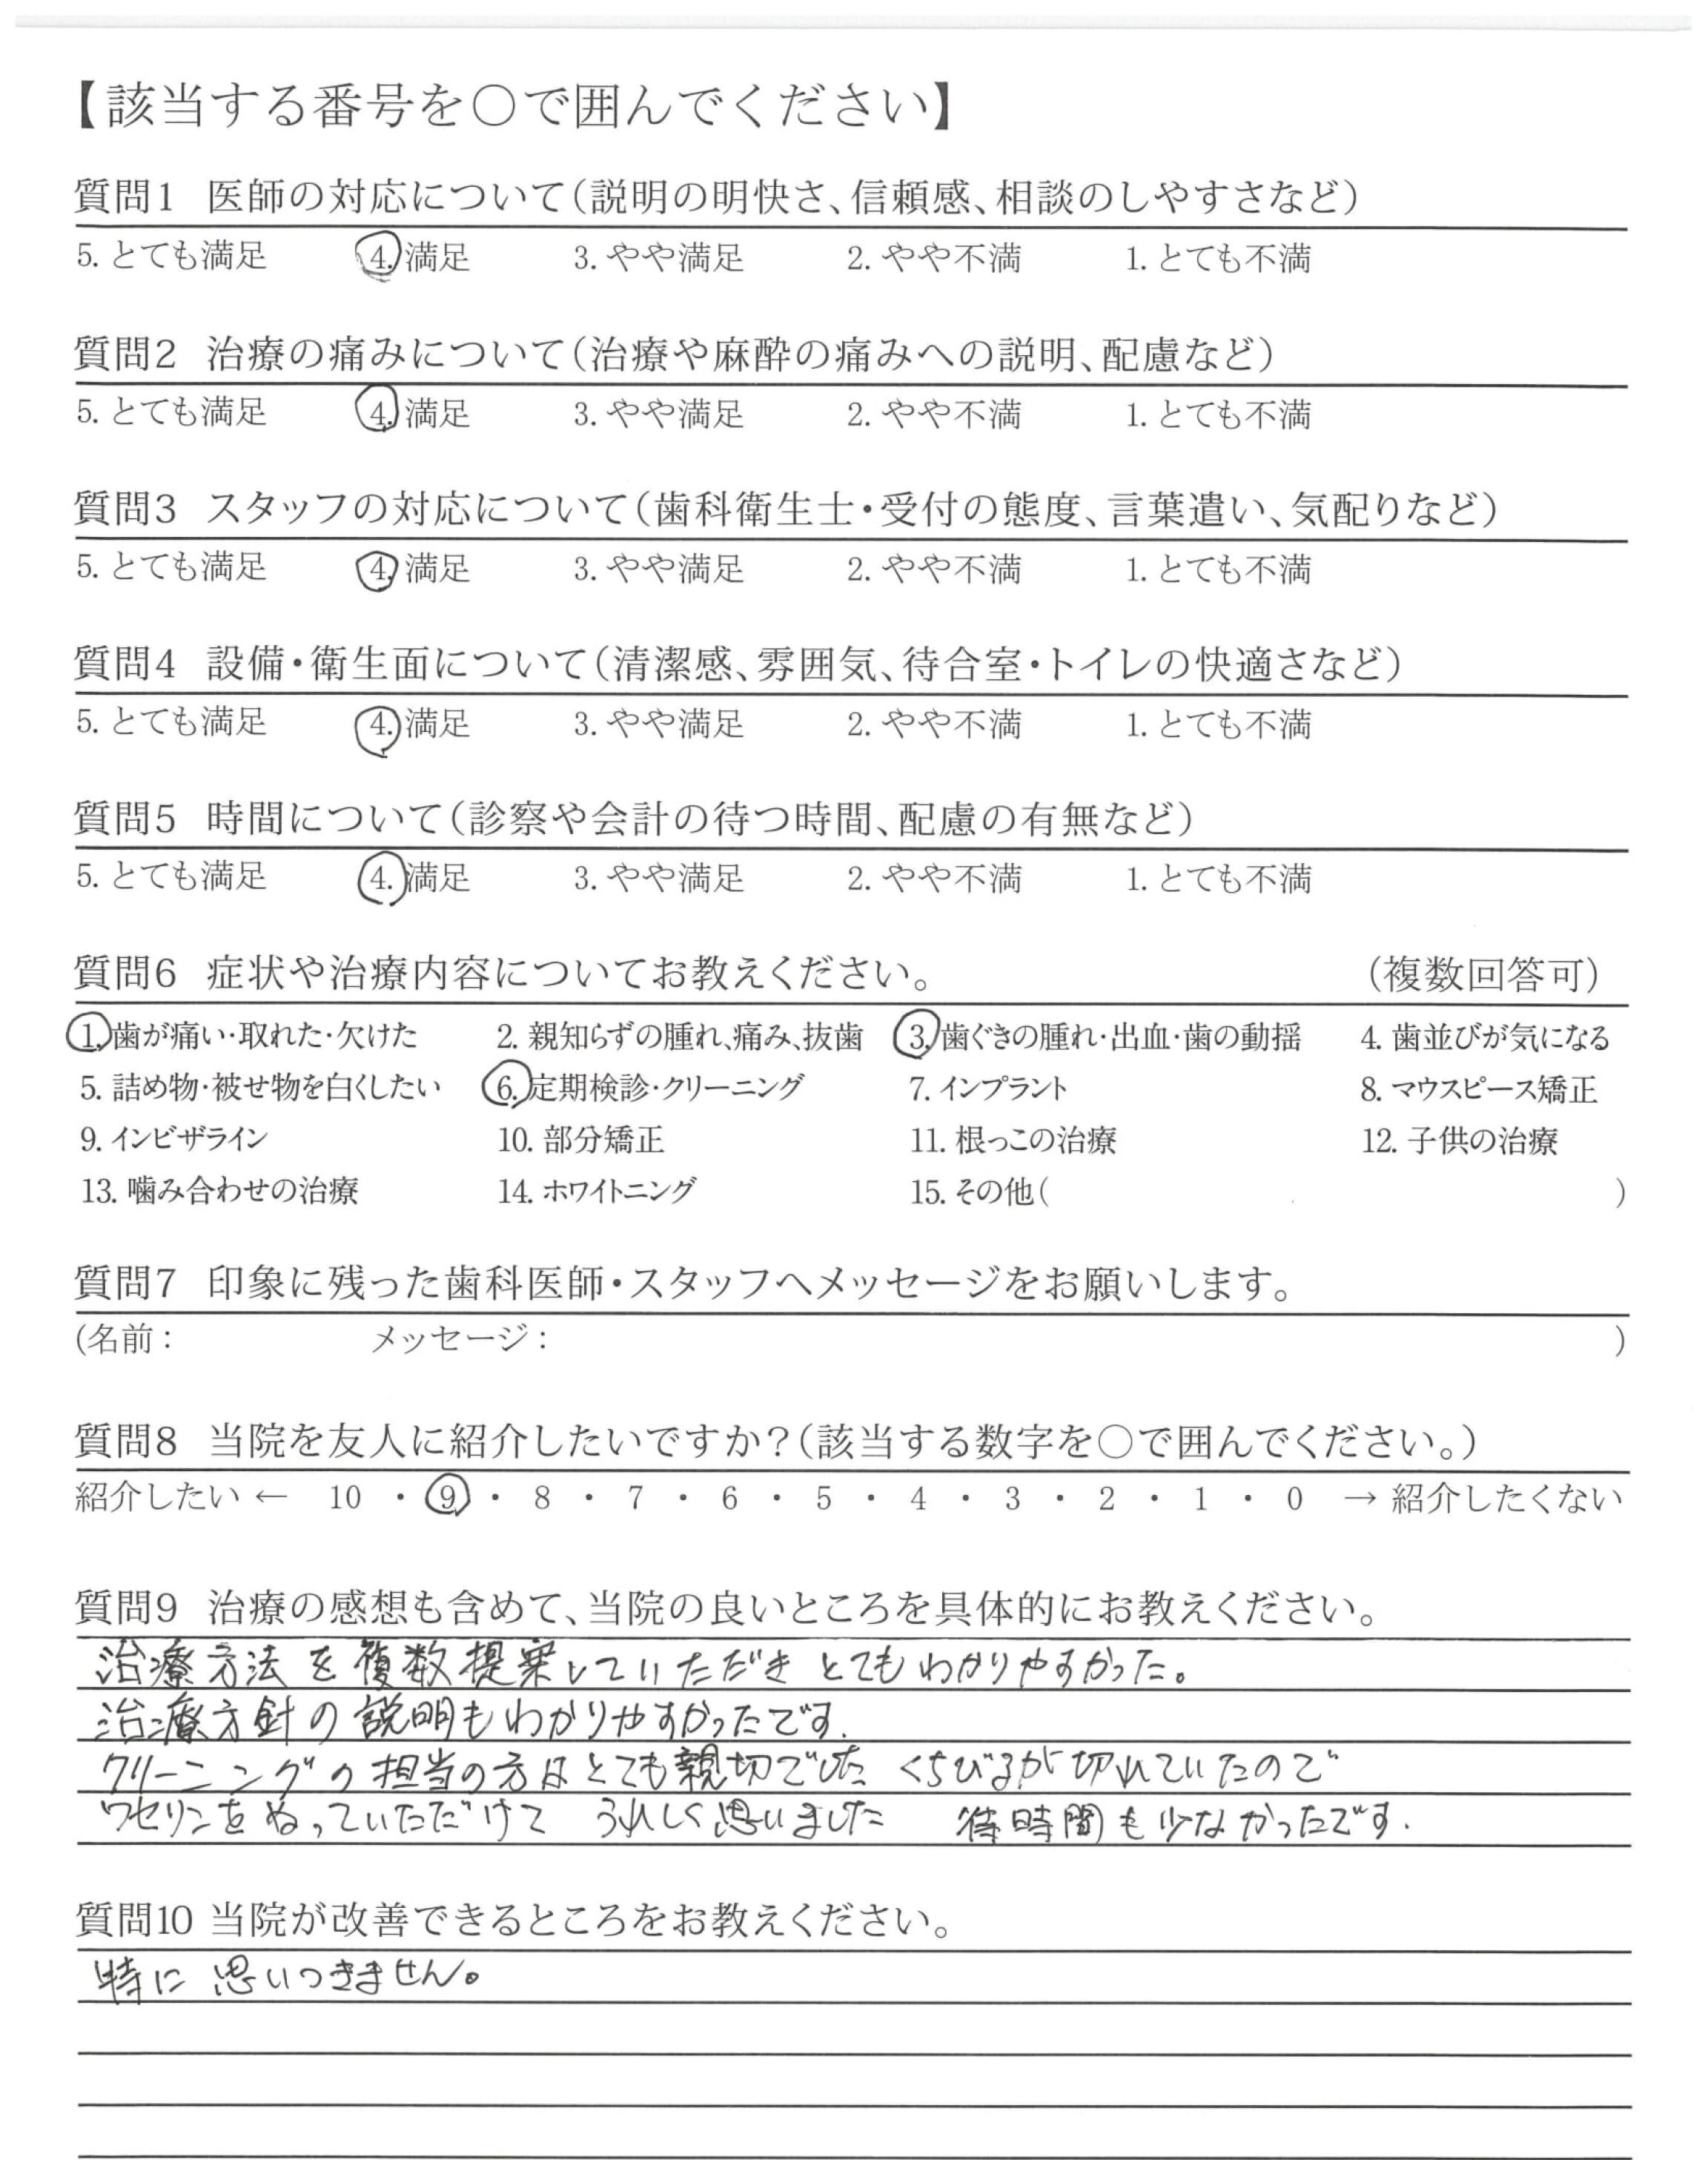 【該当する番号を○で囲んでください】
質問1 医師の対応について(説明の明快さ、信頼感、相談のしやすさなど)
5. とても満足 4. 満足 3. やや満足 2. やや不満 1. とても不満
質問2 治療の痛みについて(治療や麻酔の痛みへの説明、配慮など)
5. とても満足 4. 満足 3. やや満足 2. やや不満 1. とても不満
質問3 スタッフの対応について(歯科衛生士・受付の態度、言葉遣い、気配りなど)
5. とても満足 4. 満足 3. やや満足 2. やや不満 1. とても不満
質問4 設備・衛生面について(清潔感、雰囲気、待合室・トイレの快適さなど)
5. とても満足 4. 満足 3. やや満足 2. やや不満 1. とても不満
質問5 時間について(診察や会計の待つ時間、配慮の有無など)
5. とても満足 4. 満足 3. やや満足 2. やや不満 1. とても不満
質問6 症状や治療内容についてお教えください。 (複数回答可)
1. 歯が痛い・取れた・欠けた 2. 親知らずの腫れ、痛み、抜歯 3. 歯ぐきの腫れ・出血・歯の動揺 4. 歯並びが気になる
5. 詰め物・被せ物を白くしたい 6. 定期検診・クリーニング 7. インプラント 8. マウスピース矯正
9. インビザライン 10. 部分矯正 11. 根っこの治療 12. 子供の治療
13. 噛み合わせの治療 14. ホワイトニング 15. その他( )
質問7 印象に残った歯科医師・スタッフへメッセージをお願いします。
(名前: メッセージ: )
質問8 当院を友人に紹介したいですか?(該当する数字を○で囲んでください。)
紹介したい ← 10 ・ 9 ・ 8 ・ 7 ・ 6 ・ 5 ・ 4 ・ 3 ・ 2 ・ 1 ・ 0 → 紹介したくない
質問9 治療の感想も含めて、当院の良いところを具体的にお教えください。
治療方法を複数提案していただきとてもわかりやすかった。
治療方針の説明もわかりやすかったです.
クリーニングの担当の方はとても親切でした くちびるが切れていたので
ワセリンをぬっていただけて うれしく思いました 待時間も少なかったです.
質問10 当院が改善できるところをお教えください。
特に思いつきません。